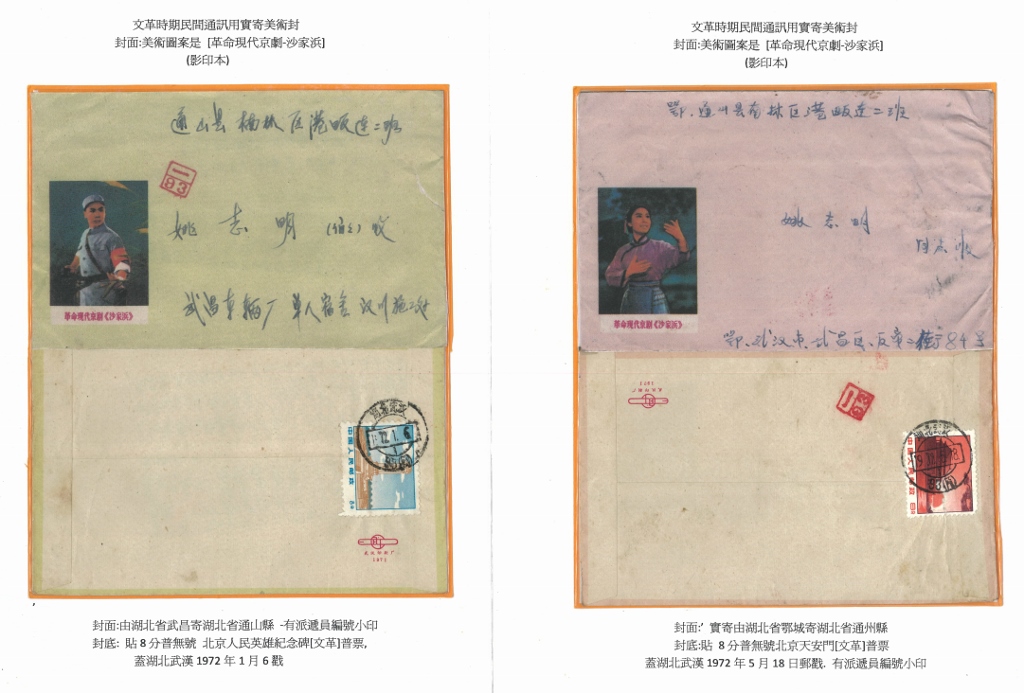 文革時期民間通訊用實寄美術封
封面:美術圖案是 [革命現代京劇-沙家浜]
(影印本)
通山县楠林区港畈连二班
一
93
姚志明 (同志) 收
革命现代京剧《沙家浜》
武昌車辆厂单人宿舍
中国人民邮政
8分
1972
封面:由湖北省武昌寄湖北省通山縣 -有派遞員編號小印
封底: 貼 8 分普無號 北京人民英雄紀念碑[文革]普票,
蓋湖北武漢 1972 年 1 月 6 戳
文革時期民間通訊用實寄美術封
封面:美術圖案是 [革命現代京劇-沙家浜]
(影印本)
鄂.通山县南林区港畈连二班
姚志明
革命现代京剧《沙家浜》
鄂、武汉市、武昌区、反帝二街84号
中国人民邮政
封面:’ 實寄由湖北省鄂城寄湖北省通州縣
封底:貼 8 分普無號北京天安門[文革]普票
蓋湖北武漢 1972 年 5 月 18 日郵戳. 有派遞員編號小印